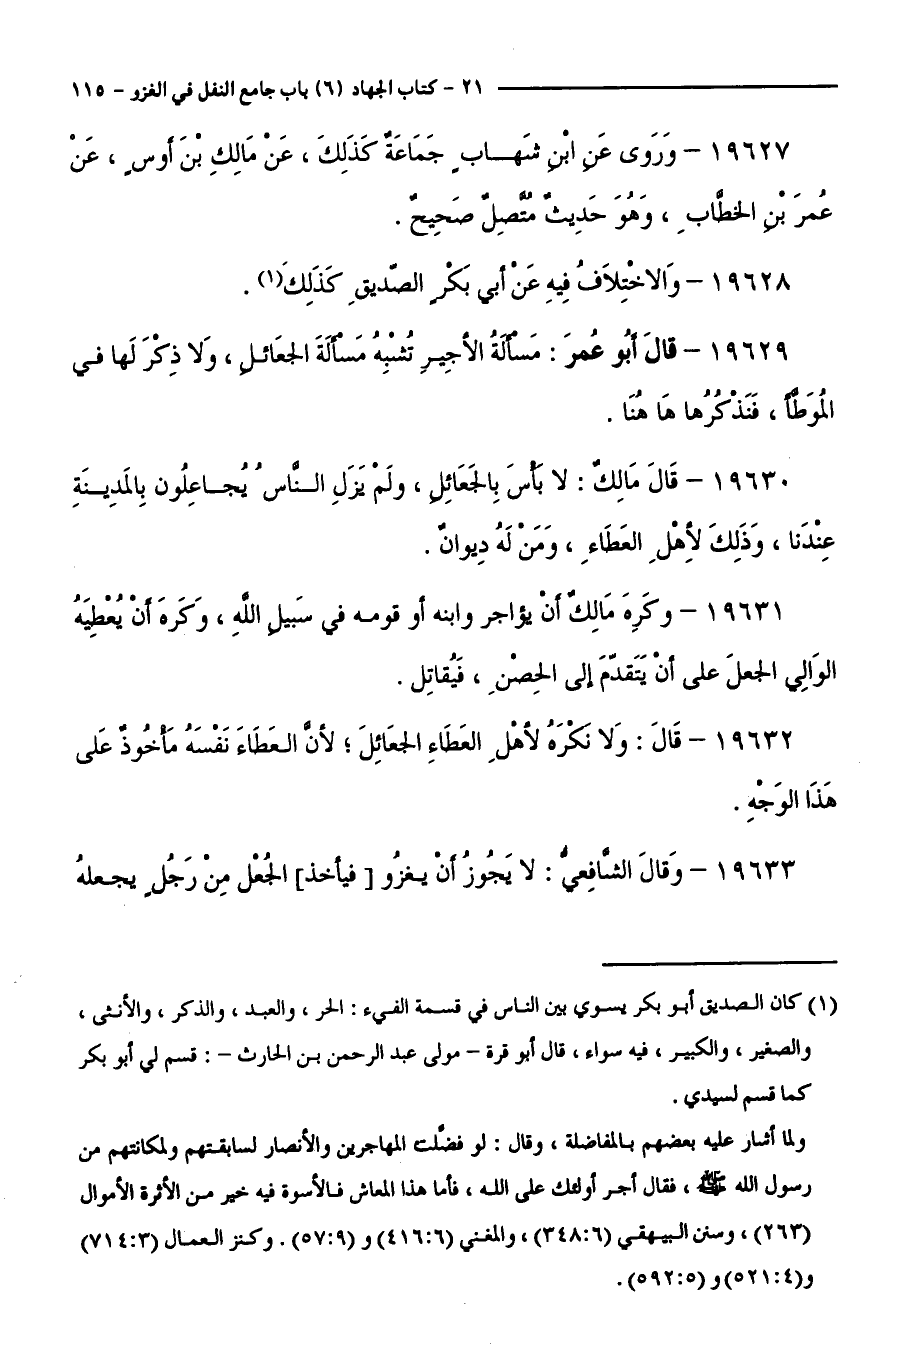 ٢١ - كتاب الجهاد (٦) باب جامع النفل في الغزو - ١١٥
١٩٦٢٧ - وَرَوَى عَنِ ابْنِ شَهَابٍ جَمَاعَةٌ كَذَلِكَ ، عَنْ مَالِكِ بْنَ أَوسٍ ، عَنْ
عُمرَ بْنِ الخطَّابِ ، وَهُوَ حَدِيثٌ مُتَّصِلٌ صَحِيحٌ .
١٩٦٢٨ - وَالاخْتِلاَفُ فِيهِ عَنْ أبي بَكْرٍ الصّديقِ كَذَلِكَ(١) .
١٩٦٢٩ - قالَ أَبُو عُمرَ : مَسْألَةُ الأجيرِ تُشْبِهُ مَسْألَةَ الجعَائلِ ، وَلا ذِكْرَ لَها في
المُوَطَّأ ، فَنَذْكُرُها هَا هُنَا .
١٩٦٣٠ - قَالَ مَالِكٌ : لا بَأْسَ بِالجَعَائِلِ ، ولَمْ يَزَلِ النَّاسُ يُجَاعِلُون بِالمَدِينَةِ
عِنْدَنا ، وَذَلِكَ لأهْلِ العَطَاءِ ، وَمَنْ لَهُ دِيوانٌ .
١٩٦٣١ - وكَرِهَ مَالِكٌ أنْ يؤاجر وابنه أو قومه في سَبيلِ اللَّهِ ، وَكَرهَ أنْ يُعْطِيَهُ
الوَالِي الجعلَ على أنْ يَتَقدّمَ إلى الحِصْنِ ، فَيُقاتِل .
١٩٦٣٢ - قَالَ : وَلا نَكْرَهُ لأهْلِ العَطَاءِ الجعَائلَ ؛ لأنَّ العَطَاءَ نَفْسَهُ مَأخُوذٌ عَلى
هَذَا الوَجْهِ .
١٩٦٣٣ - وَقالَ الشَّافِعيُّ : لا يَجُوزُ أنْ يغزُو [ فيأخذ] الجُعْل مِنْ رَجُلٍ يجعلهُ
(١) كان الصديق أبو بكر يسوي بين الناس في قسمة الفيء : الحر ، والعبد ، والذكر ، والأنثى ،
والصغير ، والكبير ، فيه سواء ، قال أبو قرة - مولى عبد الرحمن بن الحارث - : قسم لي أبو بكر
كما قسم لسيدي .
ولما أشار عليه بعضهم بالمفاضلة ، وقال : لو فضَّلت المهاجرين والأنصار لسابقتهم ولمكانتهم من
رسول الله ﷺ ، فقال أجر أولئك على الله ، فأما هذا المعاش فالأسوة فيه خير من الأثرة الأموال
(٢٦٣) ، وسنن البيهقي (٣٤٨:٦) ، والمغني (٤١٦:٦) و (٥٧:٩) . وكنز العمال (٧١٤:٣)
و(٥٢١:٤) و (٥٩٢:٥).